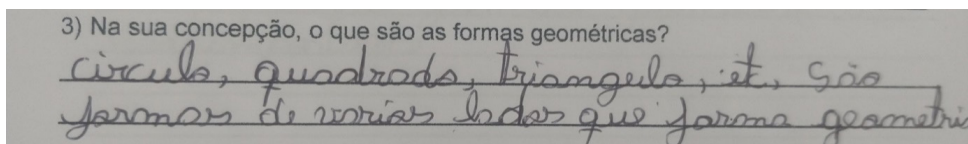 3) Na sua concepção, o que são as formas geométricas?
circulo, quadrado, triangulo, et, São
formas de varias lados que forma geometri